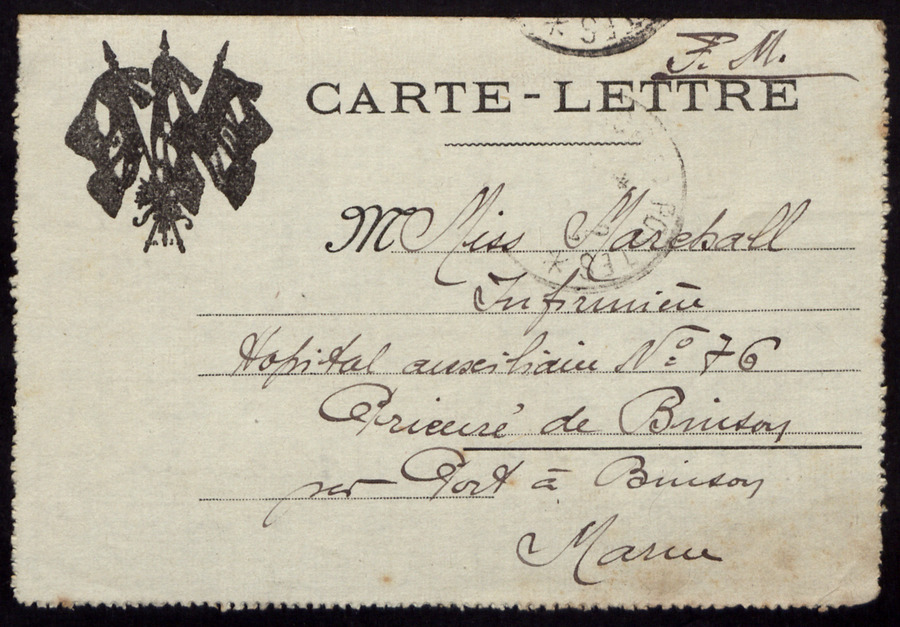 F. M.
CARTE-LETTRE
M Miss Marshall
Infirmière
Hopital auxiliaire Nº 76
Prieuré de Binson
par Port à Binson
Marne